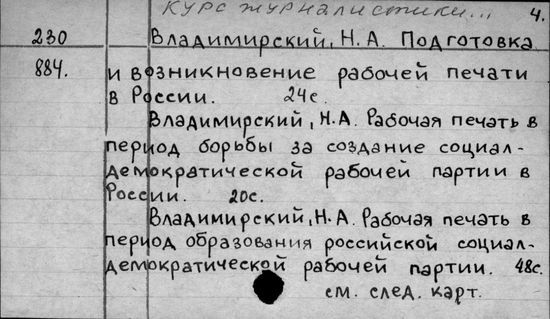 Курс журналистики... 4.
230 Владимирский, Н.А. Подготовка
884. и возникновение рабочей печати
в России. 24с.
Владимирский, Н.А. Рабочая печать в
период борьбы за создание социал-
демократической рабочей партии в
России. 20с.
Владимирский, Н.А. Рабочая печать в
период образования российской социал-
демократической рабочей партии. 48с.
см. след. карт.